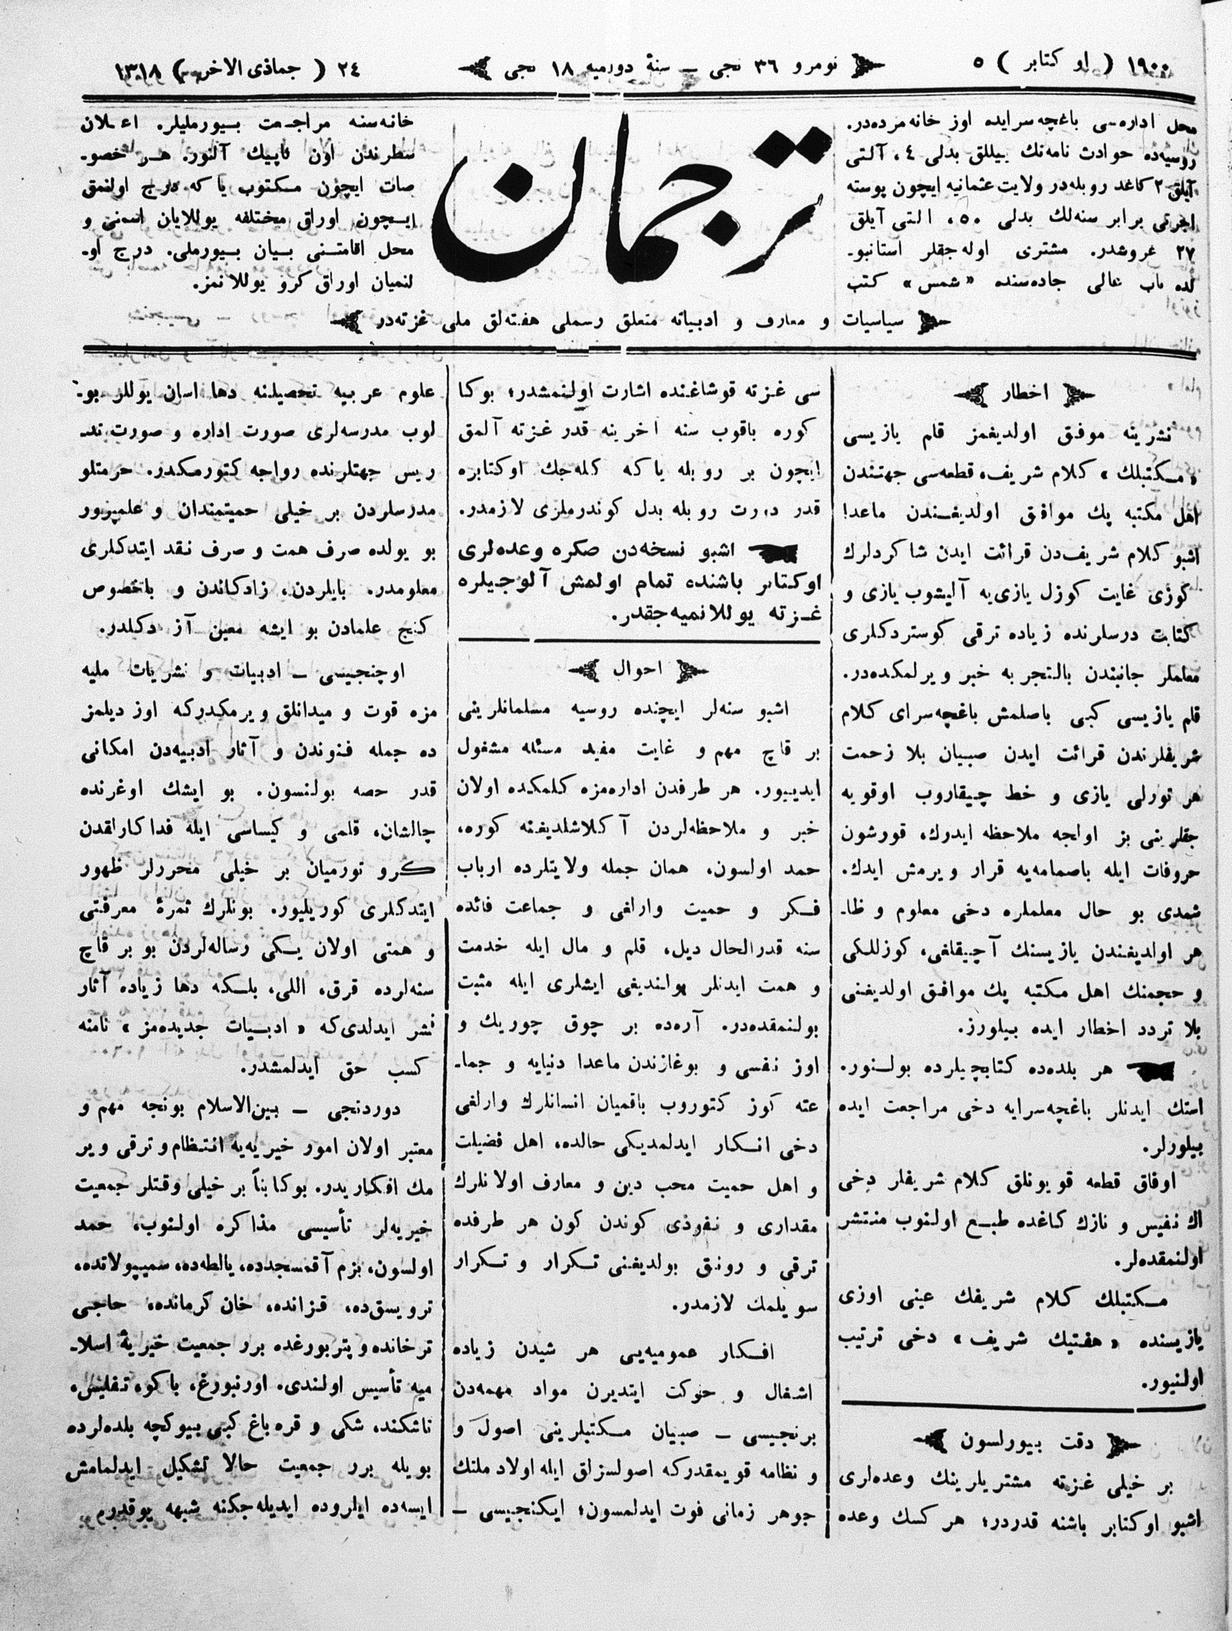 ١٩٠٠ ( او كتابر ) ٥
نومرو ٣٦ نجی ــ سنۀ دوریه ١٨ نجی
٢٤ ( جماذی الاخر ) ١٣١٨
محل اداره‌سی باغچه‌سرایده اوز خانه‌مزده‌در.
روسیه‌ده حوادث نامه‌نك ییللق بدلی ٤، آلتی
آیلق ٢ كاغد روبله‌در ولایت عثمانیه ایچون پوسته
اجرتی برابر سنه‌لك بدلی ٥٠، التی آیلق
٢٧ غروشدر. مشتری اوله‌جقلر استانبو۔
لده باب عالی جاده‌سنده «شمس» كتب
ترجمان
خانه‌سنه مراجعت بیورملیلر. اعلان
سطرندن اون قاپیك آلنور. هر خصو۔
صات ایچون مكتوب یاكه درج اولنمق
ایچون اوراق مختلفه یوللایان اسمنی و
محل اقامتنی بیان بیورملی. درج او۔
لنمیان اوراق كرو یوللانمز.
سیاسیات و معارف و ادبیاته متعلق رسملی هفته‌لق ملی غزته‌در
اخطار
نشرینه موفق اولدیغمز قلم یازیسی
«مكتبلك» كلام شریف، قطعه‌سی جهتندن
اهل مكتبه پك موافق اولدیغندن ماعدا!
اشبو كلام شریف‌دن قرائت ایدن شاكردلرك
كوزی غایت كوزل یازی‌یه آلیشوب یازی و
كتابت درسلرنده زیاده ترقی كوستردكلری
معلملر جانبندن بالتجربه خبر ویرلمكده‌در.
قلم یازیسی كبی باصلمش باغچه‌سرای كلام
شریفلرندن قرائت ایدن صبیان بلا زحمت
هر تورلی یازی و خط چیقاروب اوقویه
جقلرینی بز اولجه ملاحظه ایدرك، قورشون
حروفات ایله باصمامه‌یه قرار ویرمش ایدك.
شمدی بو حال معلملره دخی معلوم و ظا۔
هر اولدیغندن یازیسنك آچیقلغی، كوزللكی
و حجمنك اهل مكتبه پك موافق اولدیغنی
بلا تردد اخطار ایده بیلورز.
هر بلده‌ده كتابچیلرده بولنور.
استك ایدنلر باغچه‌سرایه دخی مراجعت ایده
بیلورلر.
اوفاق قطعه قویونلق كلام شریفلر دخی
اك نفیس و نازك كاغده طبع اولنوب منتشر
اولنمقده‌لر.
مكتبلك كلام شریفك عینی اوزی
یازیسنده «هفتیك شریف» دخی ترتیب
اولنیور.
دقت بیورلسون
بر خیلی غزته مشتریلرینك وعده‌لری
اشبو اوكتابر باشنه قدردر؛ هر كسك وعده
سی غزته قوشاغنده اشارت اولنمشدر؛ بوكا
كوره باقوب سنه آخرینه قدر غزته آلمق
ایچون بر روبله یاكه كله‌جك اوكتابره
قدر دورت روبله بدل كوندرملری لازمدر.
اشبو نسخه‌دن صكره وعده‌لری
اوكتابر باشنده تمام اولمش آلوجیلره
غزته یوللانمیه‌جقدر.
احوال
اشبو سنه‌لر ایچنده روسیه مسلمانلرینی
بر قاچ مهم و غایت مفید مسئله مشغول
ایدییور. هر طرفدن اداره‌مزه كلمكده اولان
خبر و ملاحظه‌لردن آكلاشلدیغنه كوره،
حمد اولسون، همان جمله ولایتلرده ارباب
فكر و حمیت وارلغی و جماعت فائده
سنه قدرالحال دیل، قلم و مال ایله خدمت
و همت ایدنلر بولندیغی ایشلری ایله مثبت
بولنمقده‌در. آره‌ده بر چوق چوریك و
اوز نفسی و بوغازندن ماعدا دنیایه و جما۔
عته كوز كتوروب باقمیان انسانلرك وارلغی
دخی انكار ایدلمدیكی حالده، اهل فضیلت
و اهل حمیت محب دین و معارف اولانلرك
مقداری و نفوذی كوندن كون هر طرفده
ترقی و رونق بولدیغنی تكرار و تكرار
سویلمك لازمدر.
افكار عمومیه‌یی هر شیدن زیاده
اشغال و حركت ایتدیرن مواد مهمه‌دن
برنجیسی ــ صبیان مكتبلرینی اصول و
و نظامه قویمقدركه اصولسزلق ایله اولاد ملتك
جوهر زمانی فوت ایدلمسون؛ ایكنجیسی ــ
علوم عربیه تحصیلنه دها اسان یوللر بو۔
لوب مدرسه‌لری صورت اداره و صورت تد۔
ریس جهتلرنده رواجه كتورمكدر. حرمتلو
مدرسلردن بر خیلی حمیتمندان و علمپرور
بو یولده صرف همت و صرف نقد ایتدكلری
معلومدر. بایلردن، زادكاندن و باخصوص
كنج علمادن بو ایشه معین آز دكلدر.
اوچنجیسی ــ ادبیات و نشریات ملیه
مزه قوت و میدانلق ویرمكدركه اوز دیلمز
ده جمله فنوندن و آثار ادبیه‌دن امكانی
قدر حصه بولنسون. بو ایشك اوغرنده
چالشان، قلمی و كیساسی ایله فداكارلقدن
كرو تورمیان بر خیلی محررلر ظهور
ایتدكلری كوریلیور. بونلرك ثمرۀ معرفتی
و همتی اولان یكی رساله‌لردن بو بر قاچ
سنه‌لرده قرق، اللی، بلكه دها زیاده آثار
نشر ایدلدی‌كه «ادبیات جدیده‌مز» نامنه
كسب حق ایدلمشدر.
دوردنجی ــ بین‌الاسلام بونجه مهم و
معتبر اولان امور خیریه‌یه انتظام و ترقی ویر
مك افكاریدر. بوكا بناً بر خیلی وقتلر جمعیت
خیریه‌لر تأسیسی مذاكره اولنوب، حمد
اولسون، بزم آقمسجدده، یالطه‌ده، سمیپولاتده،
ترویسق‌ده، قزانده، خان كرمانده، حاجی
ترخانده و پتربورغده برر جمعیت خیریۀ اسلا۔
میه تأسیس اولندی. اورنبورغ، باكو، تفلیس،
تاشكند، شكی و قره‌باغ كبی بیوكچه بلده‌لرده
بویله برر جمعیت حالا تشكیل ایدلمامش
ایسه‌ده ایلروده ایدیله‌جكنه شبهه یوقدر.